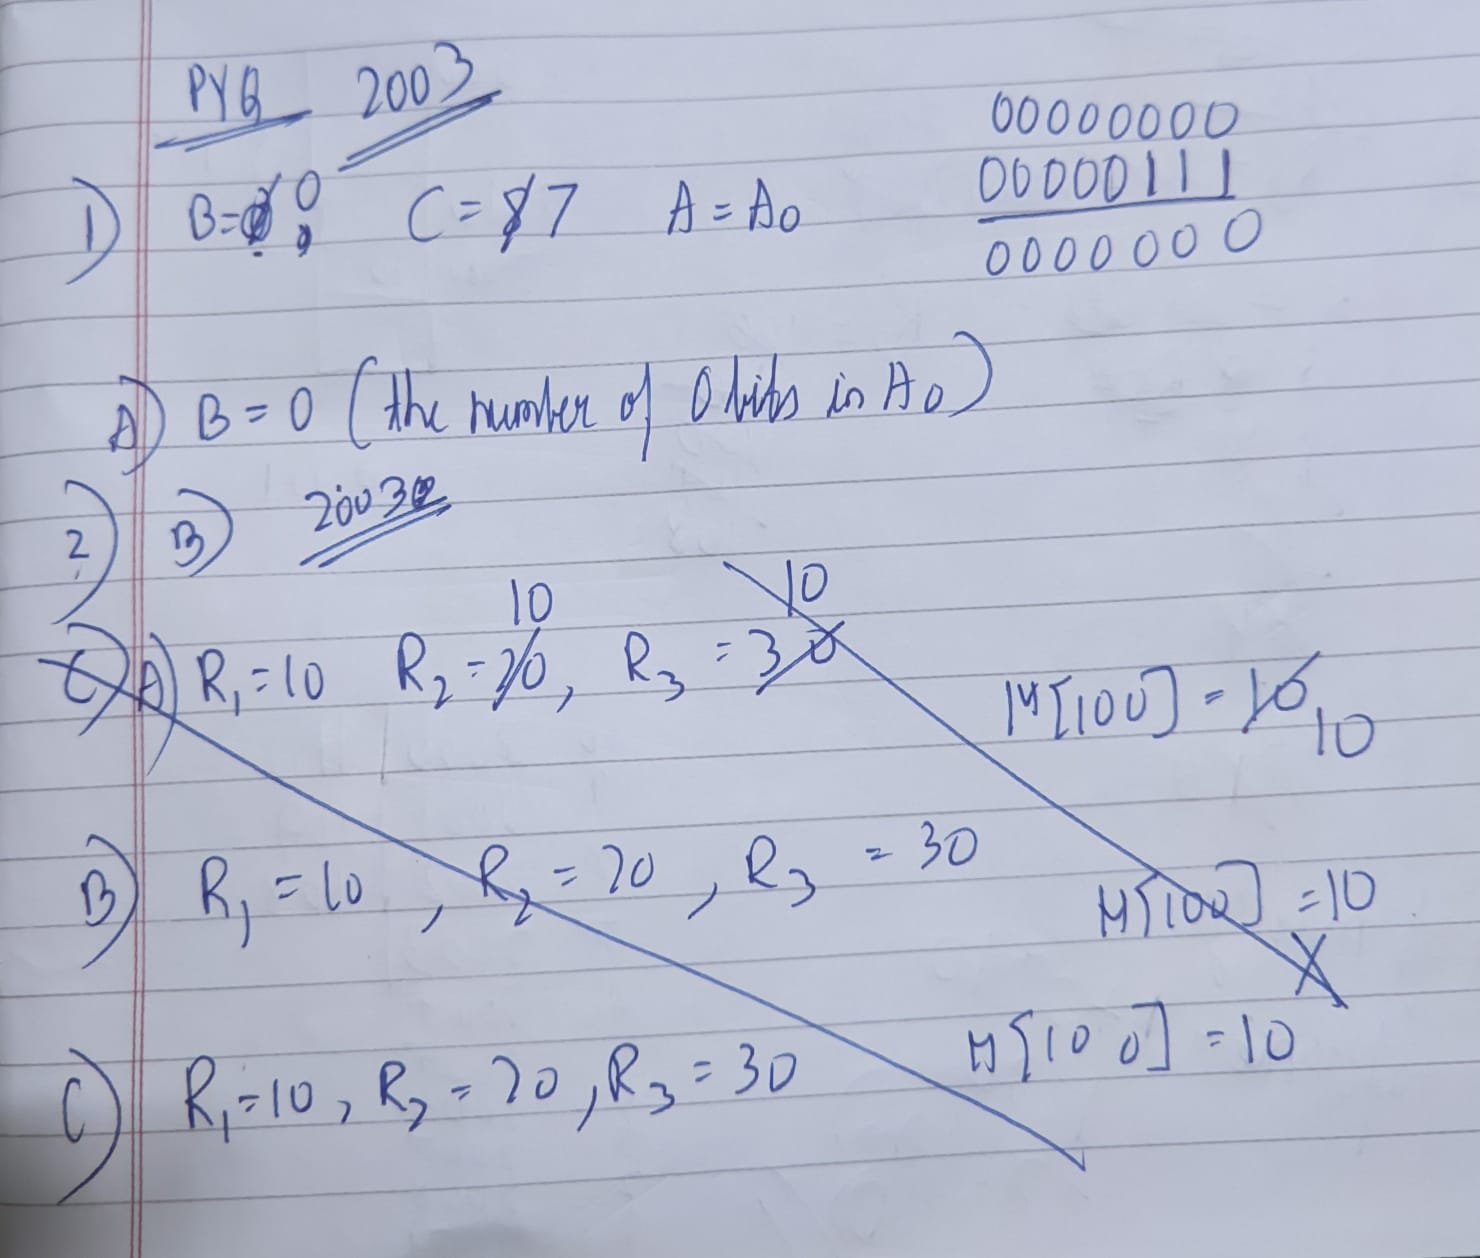 PYQ 2003
00000000
00000111
0000000
1) B= 0 C = 7 A = A0
A) B = 0 (the number of 0 bits in A0)
2) B) 2003
10 10
C) A) R1 = 10 R2 = 20, R3 = 30 M[100] = 10 10
B) R1 = 10, R2 = 20, R3 = 30 M[100] = 10
X
C) R1 = 10, R2 = 20, R3 = 30 M[100] = 10